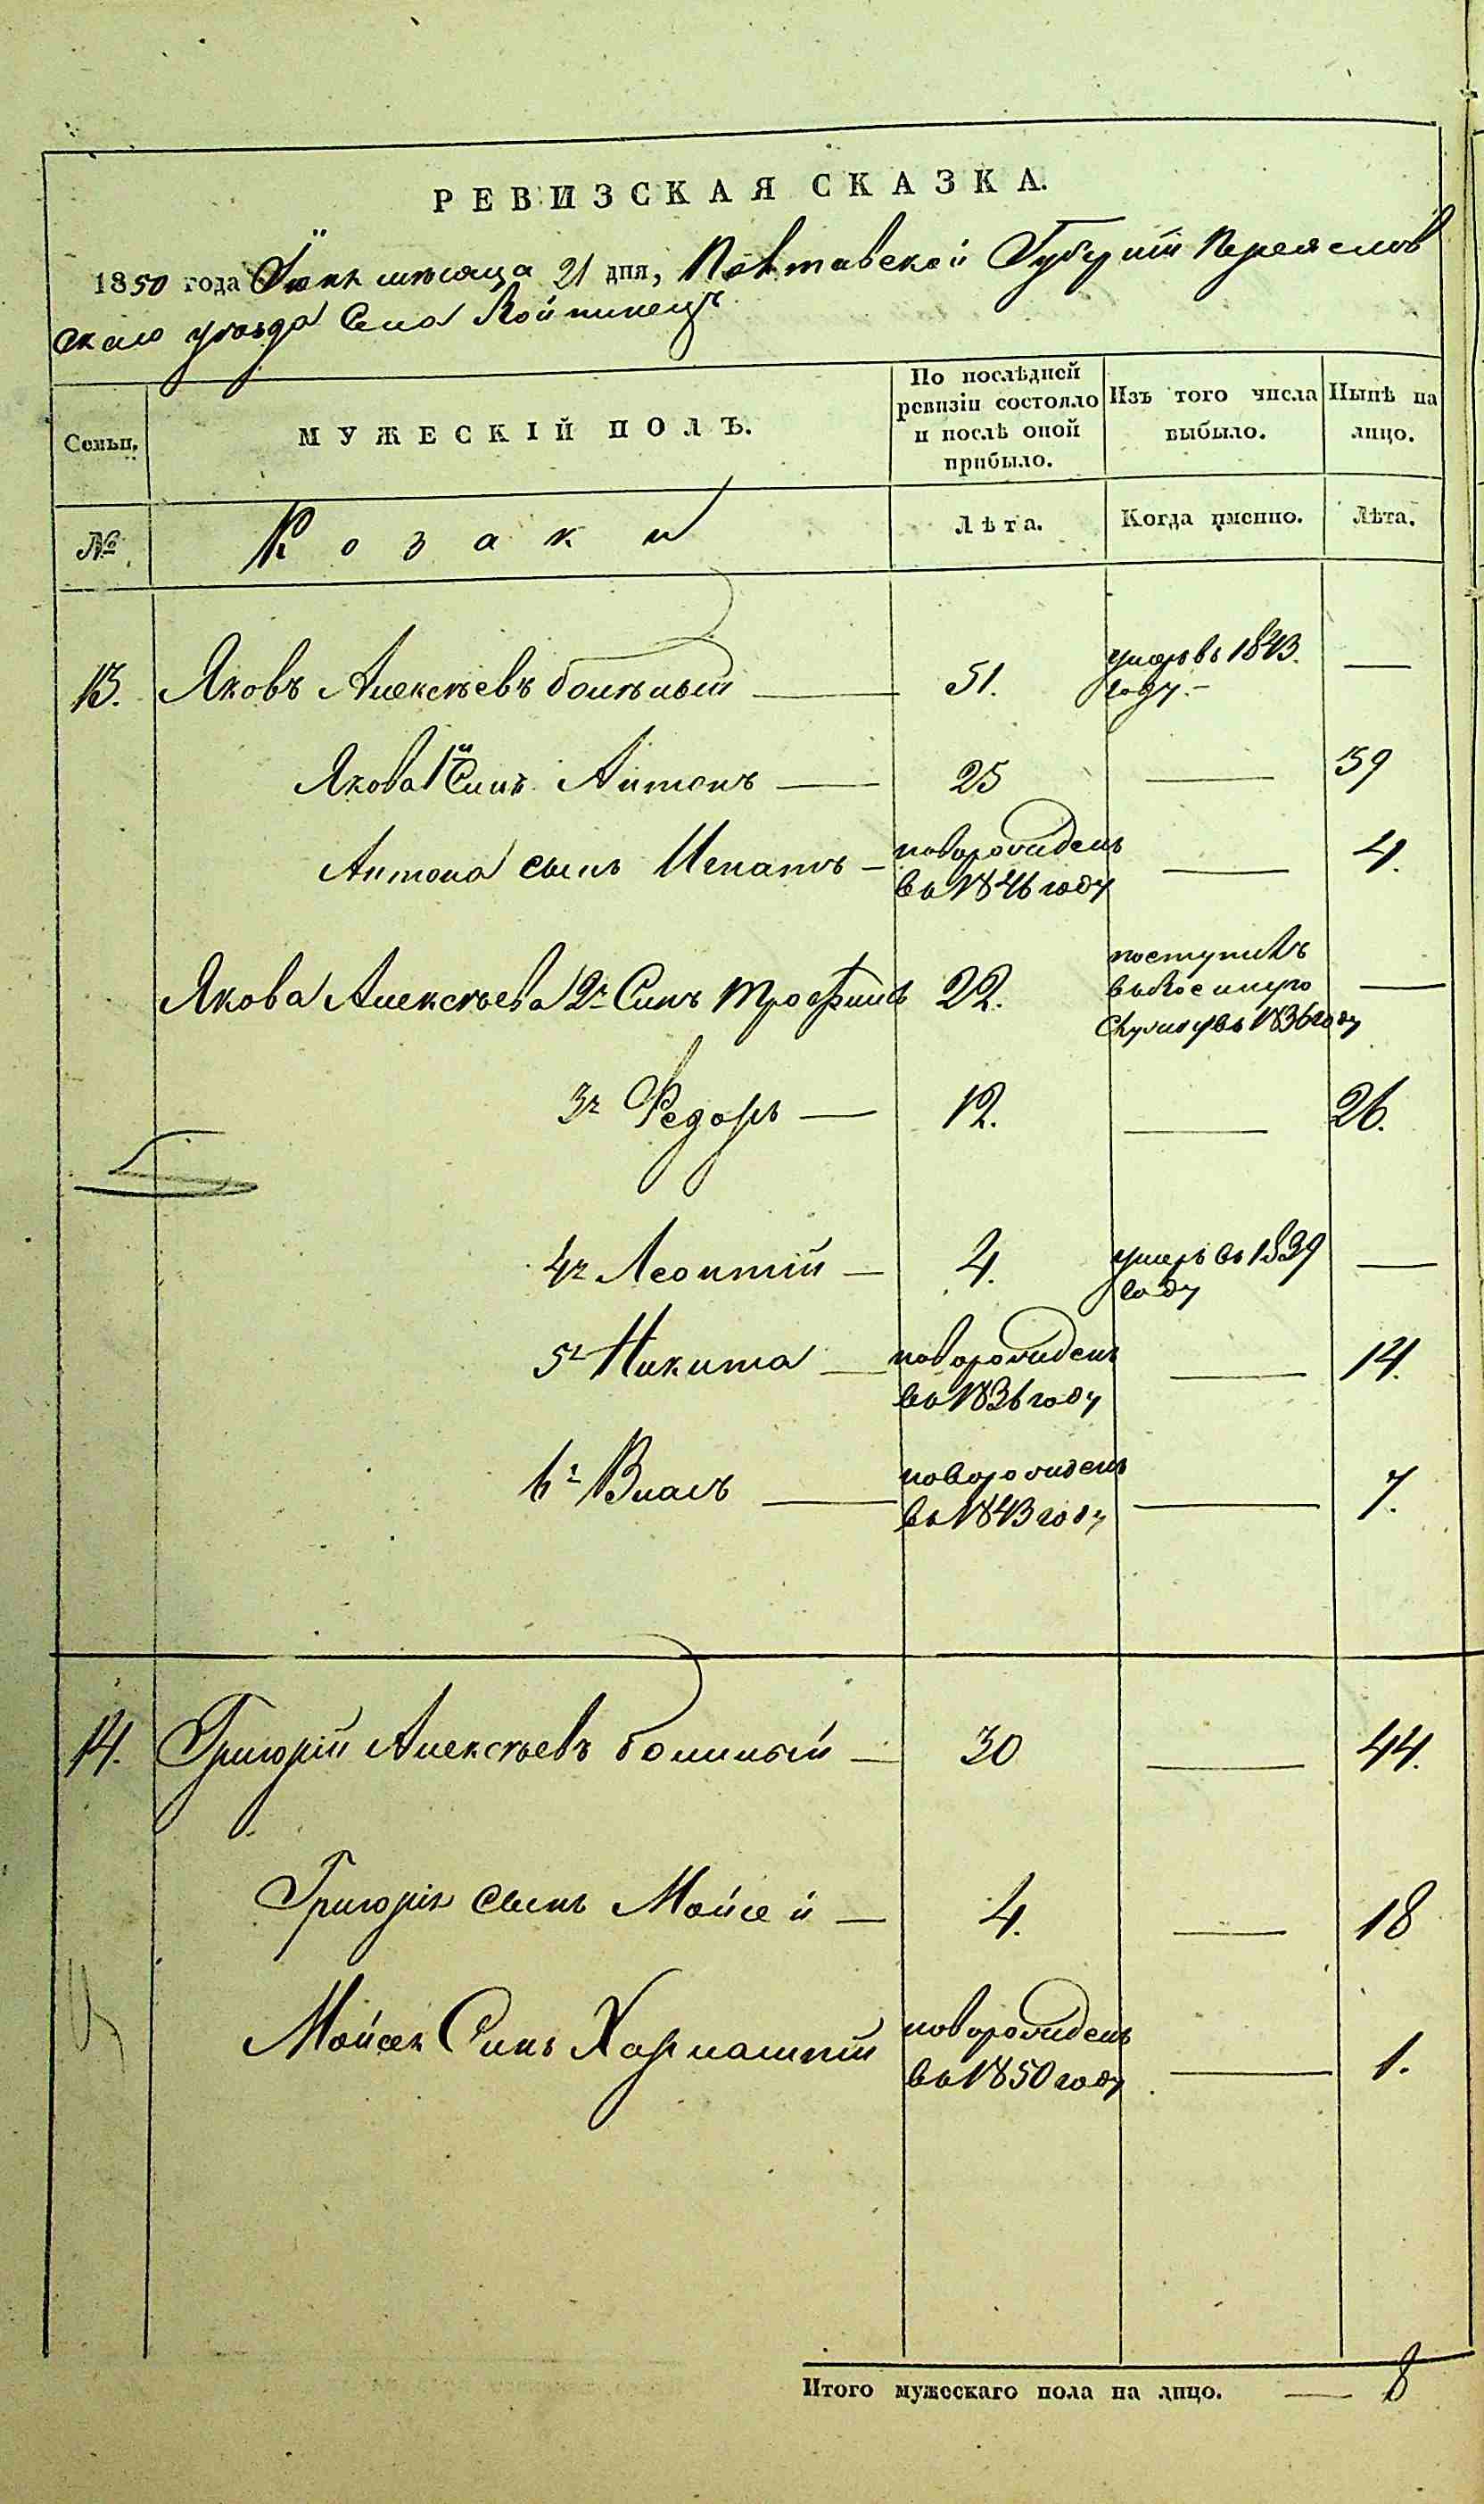 РЕВИЗСКАЯ СКАЗКА.
1850 года Іюня мѣсяца 21 дня, Полтавской Губерніи Переяслов
скаго уѣзда Села Войтинецъ
Семьи.
МУЖЕСКІЙ ПОЛЪ.
По послѣдней ревизіи состояло и послѣ оной прибыло.
Изъ того числа выбыло.
Нынѣ на лицо.
№
Козаки
Лѣта.
Когда именно.
Лѣта.
13. Яковъ Алексѣевъ 51. умеръ въ 1843. году. —
Якова 1й Синъ Антонъ — 25 — 39
Антона сынъ Игнатъ — новорожденъ въ 1846 году — 4.
Якова Алексѣева 2й Синъ Трофимъ 22. поступилъ
въ 1836 году —
3й Федоръ — 12. — 26.
4й Леонтій — 4. умеръ въ 1839 году —
5й Никита — новорожденъ въ 1836 году — 14.
6й Власъ — новорожденъ въ 1843 году — 7.
14. Григорій Алексѣевъ — 30 — 44.
Григорія сынъ Мойсей — 4. — 18
Мойсея Синъ Харлампій новорожденъ въ 1850 году — 1.
Итого мужескаго пола на лицо. — 8